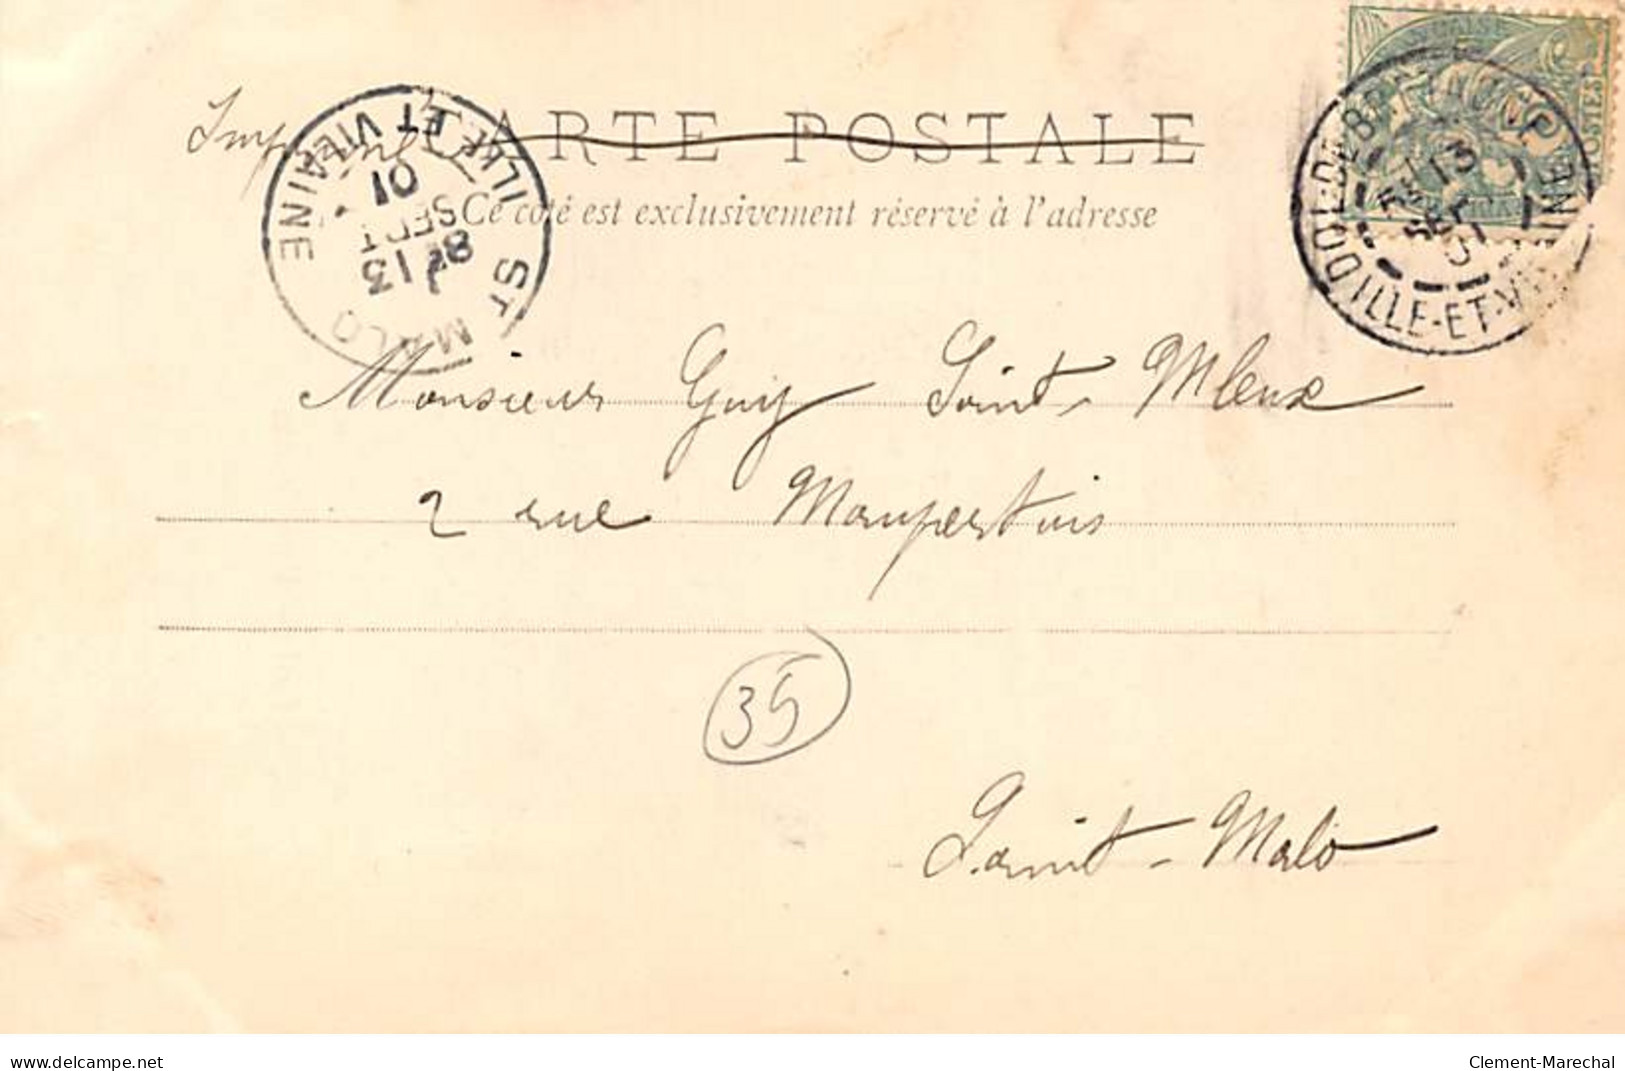 Imprimé
CARTE POSTALE
Ce côté est exclusivement réservé à l'adresse
ST MALO
ILLE ET VILAINE
8E 13
SEPT
01
13
SEPT
01
ILLE-ET-VILAINE
POSTES
Monsieur Guy Saint-Mleux
2 rue Maupertuis
35
Saint-Malo
www.delcampe.net
Clement-Marechal